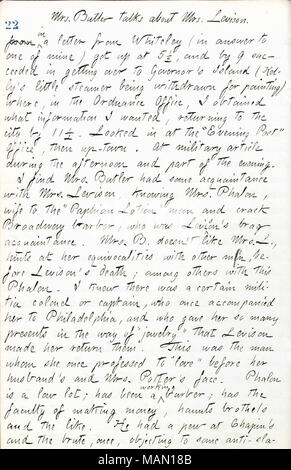 Mrs. Butler talks about Mrs. Levison.
22
in
from a letter from Whiteley (in answer to
one of mine) got up at 5½, and by 9 suc-
ceeded in getting over to Governor's Island (
ly's little steamer being withdrawn for painting)
where, in the Ordnance Office, I obtained
what information I wanted, returning to the
city by 11½. Looked in at the "Evening Post"
Office, then up-town. At military article
during the afternoon and part of the evening.
I find Mrs. Butler had some acquaintance
with Mrs. Levison, knowing Mrs. Phalon,
wife to the "Paphian Lotion" man and crack
Broadway barber, who was Levison's brag
acquaintance. Mrs. B. doesn't like Mrs. L.,
hints at her equivocalities with other men, be-
fore Levison's death; among others with this
Phalon. I knew there was a certain mili-
tia colonel or captain, who once accompanied
her to Philadelphia, and who gave her so many
presents in the way of "jewelry" that Levison
made her return them. This was the man
whom she once professed to "love" before her
husband's and Mrs. Potter's face. Phalon
working
is a low lot; has been a barber; has the
faculty of making money, haunts brothels
and the like. He had a pew at Chapin's
and the brute, once, objecting to some anti-sla-
alamy
Image ID: MAN18B
www.alamy.com